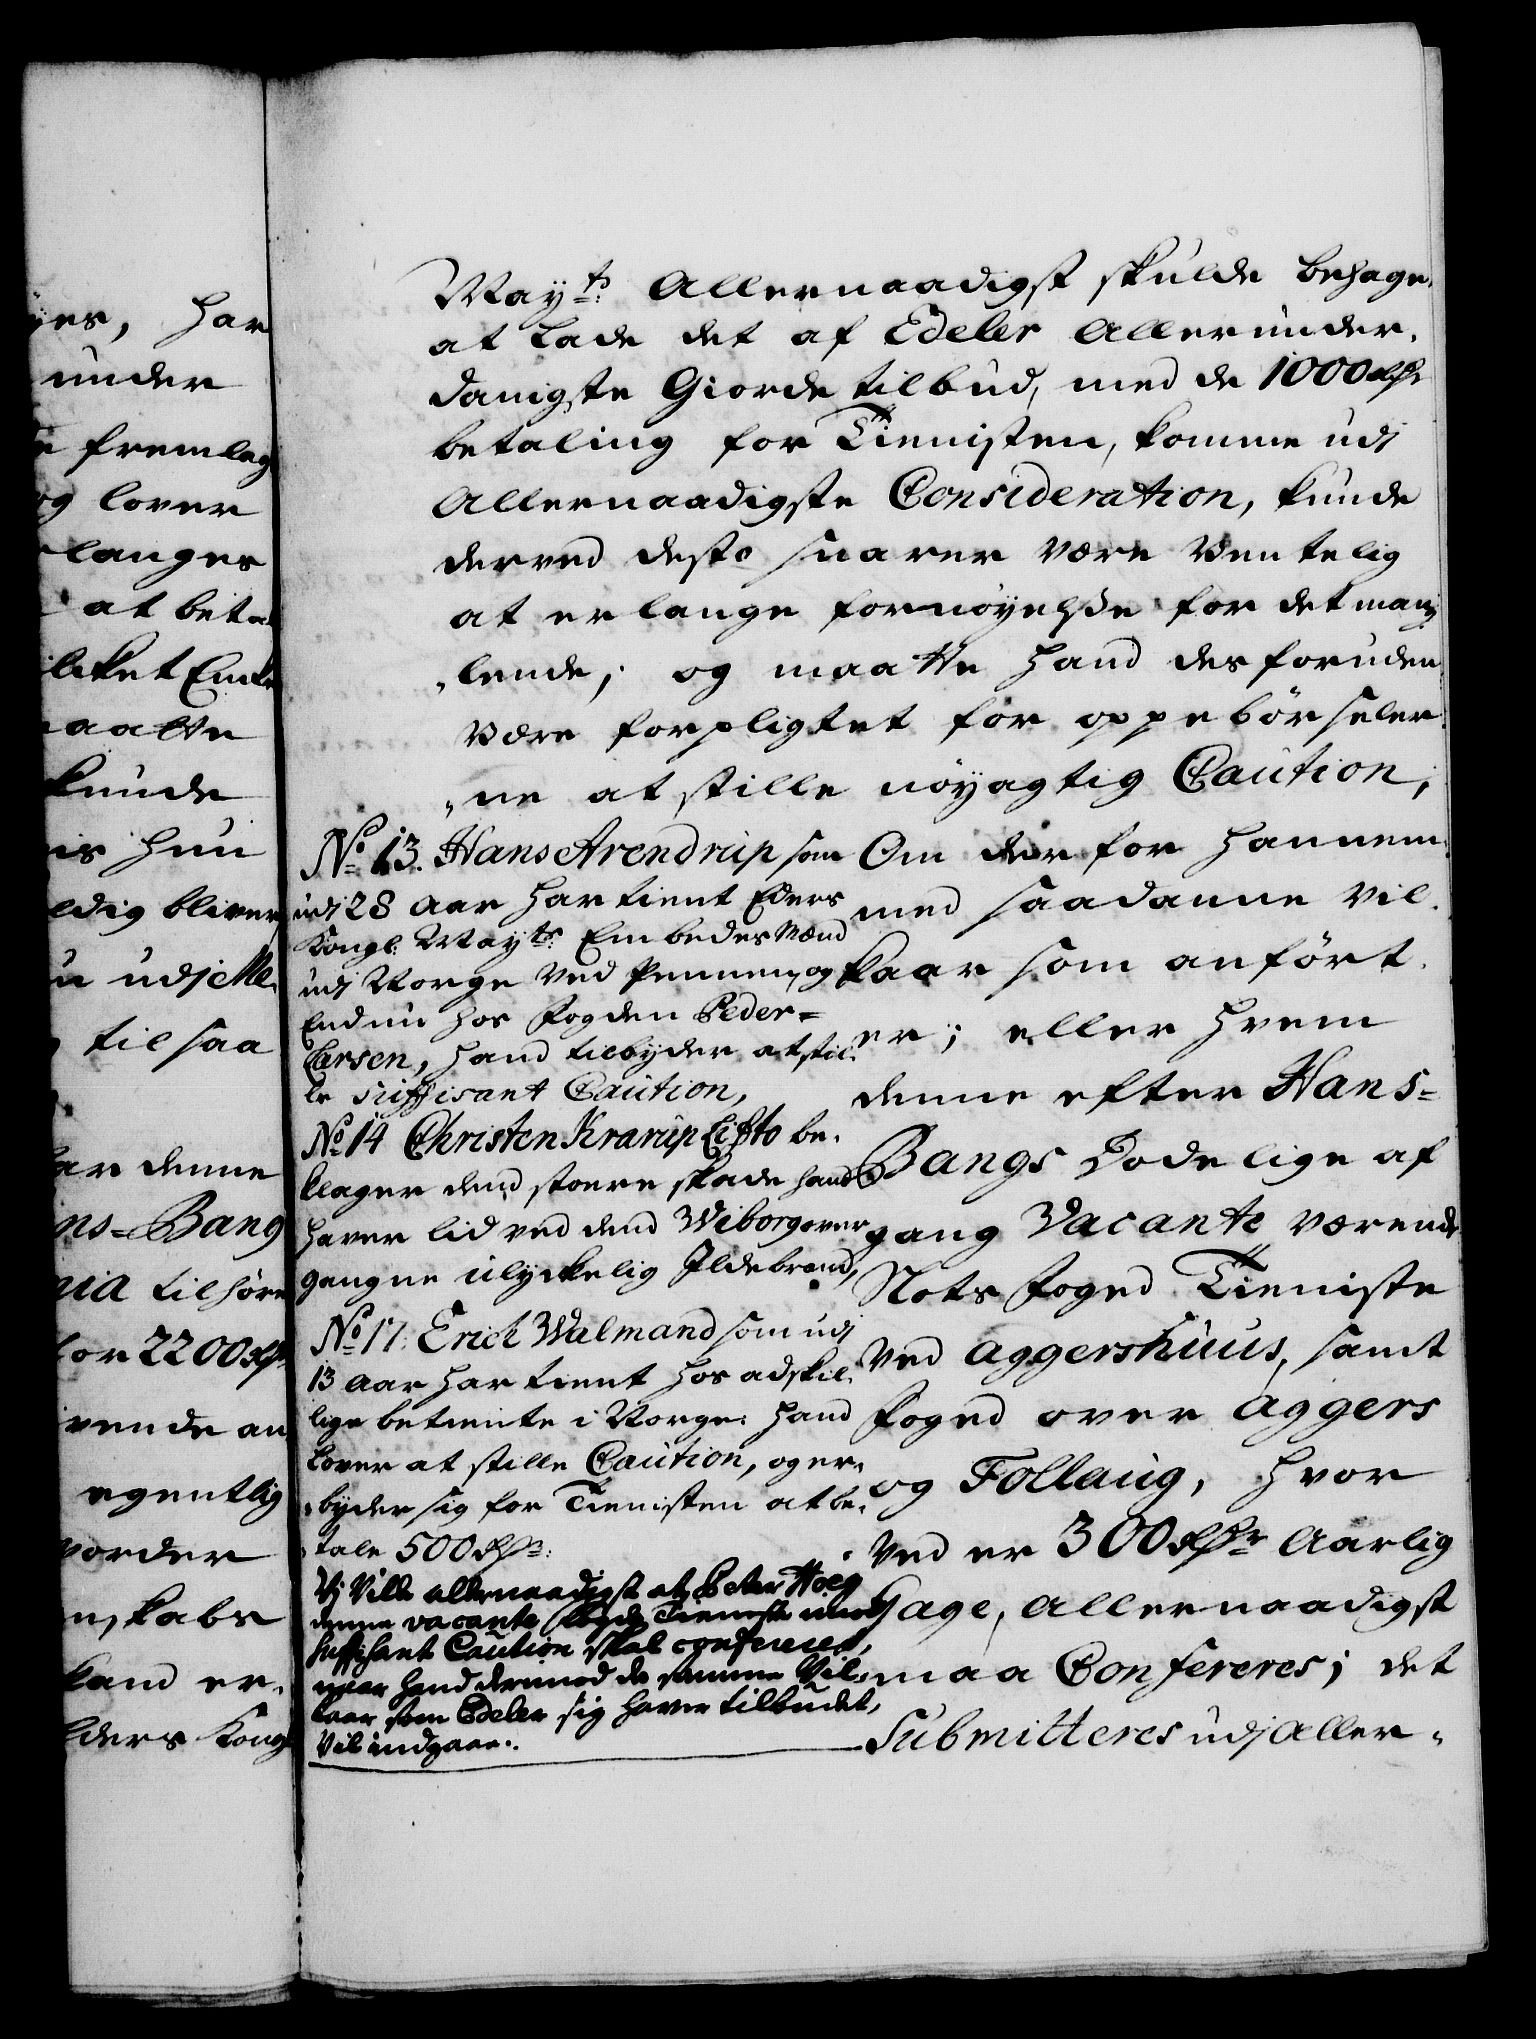 yes, har
under
fremleg
og lover
langes
at beta
liket Enke
maatte
kunde
is hun
ledig bliver,
udj Me
til saa
har denne
ns=Bang
nia tilhøre
for 2200 Rdr
vende an
egentlig
vorder
nskabs
kand er„
Eders Kongl
Mayts: Allernaadigst skulde behage,
at lade det af Edeler Allerunder„
danigste Giorde tilbud, med de 1000 Rdr
betaling for Tienisten, komme udj
Allernaadigste Consideration, kunde
derved desto snarer være Ventelig
at erlange fornøyelse for det mang
„lende; og maatte hand desforuden
være forpligtet for oppebørseler
„ne at stille nøyagtig Caution;
No 13. Hans Arendrup som
udj 28 Aar har tient Eders
Kongl: Mayts: Embedes Mænd
udj Norge ved Pennen, og
Endnu hos fogden Peder=
Larsen, hand tilbyder at stil„
le suffisant Caution,
No 14 Christen Krarup Lifsto be„
klager dend stoere skade hand
haver lid ved dend Wiborg over
gangne ulyckelig Ildebrand,
No 17. Erich Walmand som udj
13 Aar har tient hos adskil„
lige betiente i Norge: hand
lover at stille Caution, og er„
„byder sig for Tienisten at be„
„tale 500 Rdr:
Vj Ville allernaadigst at Peter Høeg
denne vacante Fogde Tieniste imod
suffisant Caution skal confereres,
naar hand dermed de samme Vil„
kaar som Edeler sig haver tilbudet,
vil indgaae.
Om der for hannem
med saadanne vil„
kaar som anført
er; eller hvem
denne efter Hans=
Bangs Dødelige af
gang Vacante værende
Slots foged Tieniste
ved Aggershuus, samt
foged over Aggers
og Follaug, hvor
ved er 300 Rdr Aarlig
Gage, Allernaadigst
maa Confereres; det
Submitteres udj Aller„